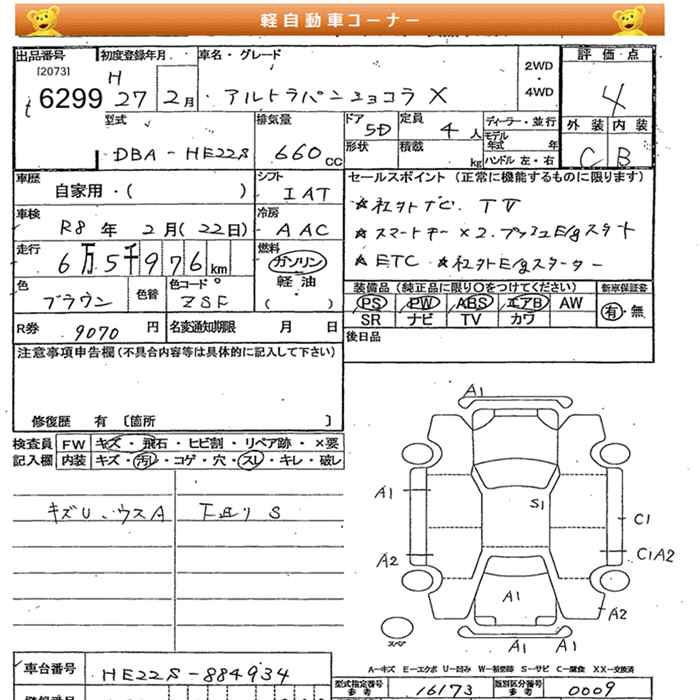 軽自動車コーナー
出品番号 初度登録年月 車名・グレード 2WD・4WD 評価点
[2073] H
6299 27年 2月 アルトラパンショコラ X 4
型式 排気量 ドア 定員 ディーラー・並行 外装 内装
DBA-HE22S 660cc 5D 4人 モデル年式 年 C B
形状 積載 kg ハンドル 左・右
車歴 シフト セールスポイント (正常に機能するものに限ります)
自家用・( ) IAT ★社外ナビ. TV
車検 冷房
R8年 2月(22日) AAC ★スマートキー×2. プッシュE/gスタート
走行 燃料
6万5千976km ガソリン ★ETC ★社外E/gスターター
軽油
色 色替 色コード ( ) 装備品 (純正品に限り○をつけてください) 新車保証書
ブラウン ZSF PS PW ABS エアB AW 有・無
R券 9070円 名変通知期限 月 日 SR ナビ TV カワ
注意事項申告欄(不具合内容等は具体的に記入して下さい) 後日品
修復歴 有 〔箇所 〕
検査員 FW キズ・飛石・ヒビ割・リペア跡・×要
記入欄 内装 キズ・汚レ・コゲ・穴・スレ・キレ・破レ
キズU、ウスA 下廻りS
A1
A1
S1
C1
A2
C1A2
A1
A2
スペア
A1 A1
A-キズ E-エクボ U-凹み W-補修跡 S-サビ C-腐食 XX-交換済
車台番号 HE22S-884934
型式指定番号 参考 16173 類別区分番号 参考 0009